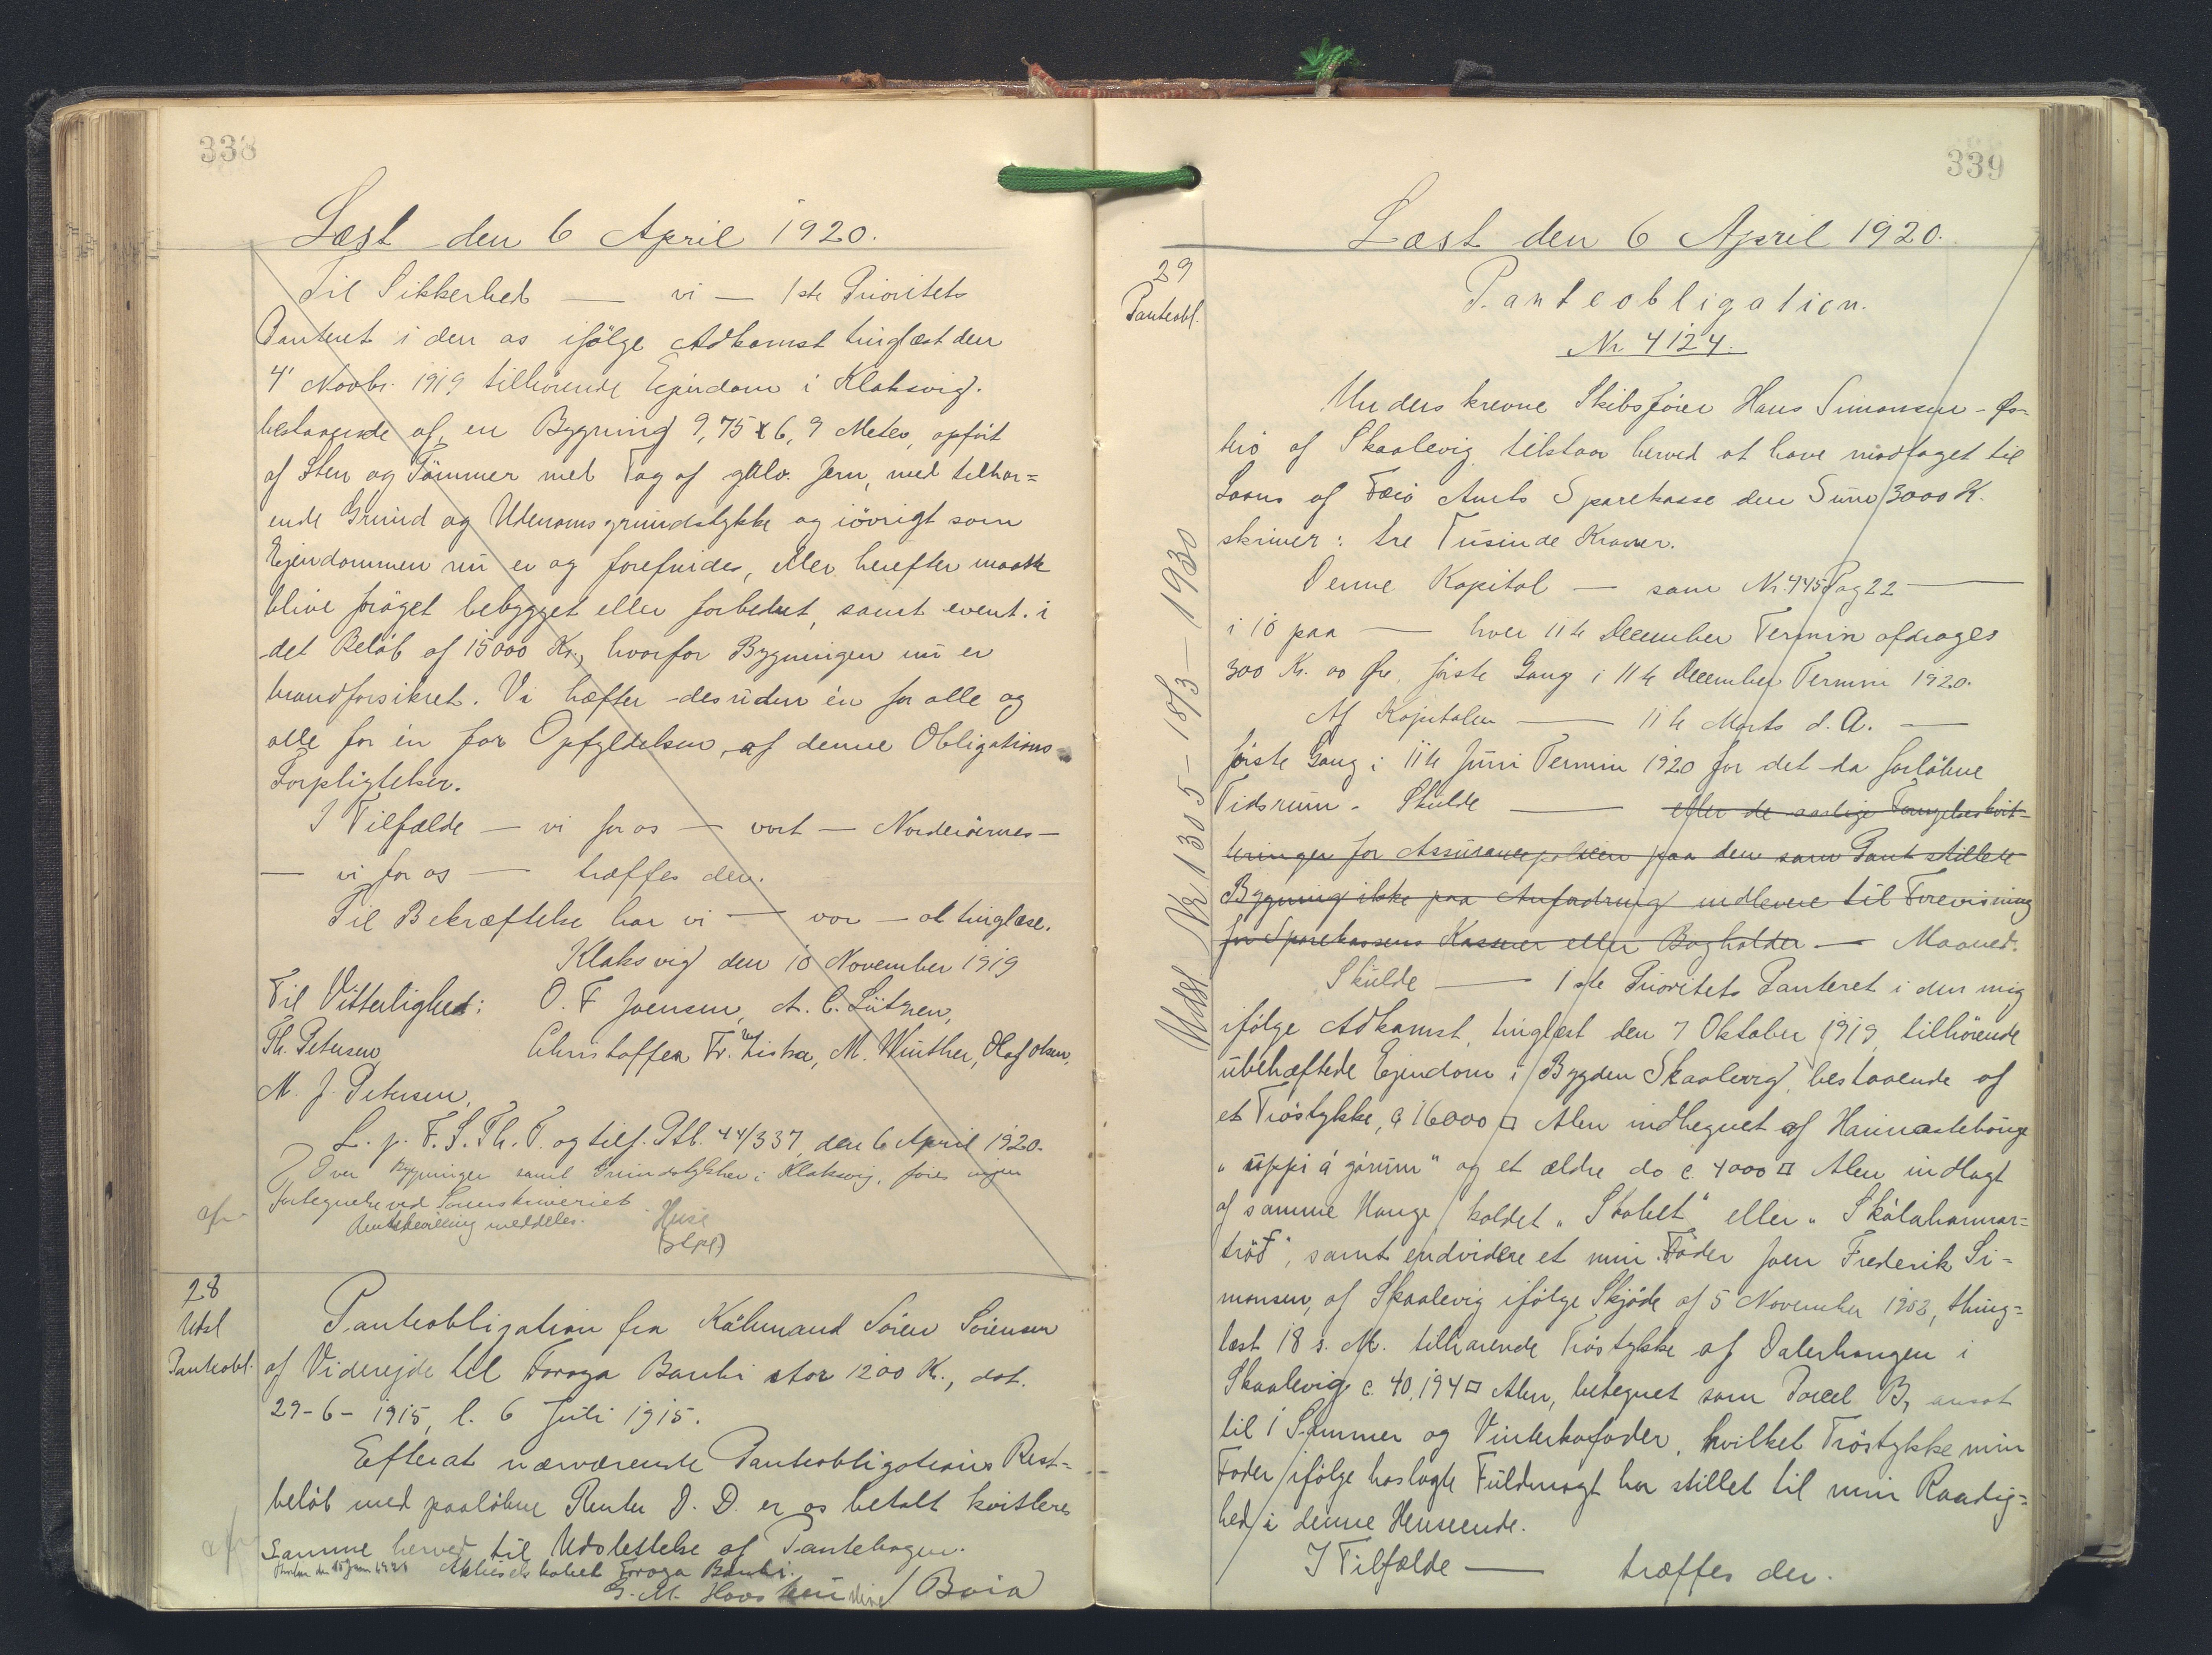 338
Læst den 6 April 1920.
Til Sikkerhed — vi — 1ste Prioritets
Panteret i den os ifölge Adkomst tinglæst den
4' Novbr. 1919 tilhörende Ejendom i Klaksvig.
bestaaende af, en Bygning 9,75 x 6,9 Meter, opfört
af Sten og Tömmer med Tag af galv. Jern, med tilhör=
ende Grund og Udenomsgrundstykke og iövrigt som
Ejendommen nu er og forefindes, eller herefter maatte
blive foröget bebygget eller forbedret, samt event. i
det Belöb af 15000 Kr., hvorfor Bygningen nu er
brandforsikret. Vi hæfter desuden én for alle og
alle for én for Opfyldelsen af denne Obligations
Forpligtelser.
I Tilfælde — vi for os — vort — Norderöernes —
— vi for os — træffes der.
Til Bekræftelse har vi — vor — at tinglæse.
Klaksvig den 10 November 1919
Til Vitterlighed: O. F Joensen, A. C. Lützen,
Th. Petersen, Christoffer Fr. Ziska, M. Winther, Olaf Olsen,
M. J. Petersen.
L. p. F. S. Th. T. og tilf. Ptb. 44/337 den 6 April 1920.
Over Bygninger samt Grundstykker i Klaksvig, föres ingen
fortegnelse ved Sorenskriveriet
Amtsbevilling meddeles.
28
Udsl
Panteobl.
Panteobligation fra Köbmand Sören Sörensen
af Viderejde til Föroya Banki stor 1200 Kr., dat.
29-6-1915, l. 6 Juli 1915.
Efterat nærværende Panteobligations Rest=
belöb med paalöbne Renter D. D. er os betalt kvitteres
samme herved til Udslettelse af Pantebogen.
Aktieselskabet Föroya Banki.
339
Læst den 6 April 1920.
29
Panteobl.
Panteobligation.
Nr 4124.
Underskrevne Skibsförer Hans Simonsen - Øs=
terö af Skaalevig tilstaar herved at have modtaget til
Laans af Færö Amts Sparekasse den Sum 3000 K.
skriver: tre Tusinde Kroner.
Denne Kapital — som Nr. 445 Pag 22 —
i 10 paa — hver 11te December Termin afdrages
300 Kr. 00 Øre, förste Gang i 11te December Termin 1920.
Af Kapitalen — 11te Marts d. A. —
förste Gang i 11te Juni Termin 1920 for det da forlöbne
Tidsrum. Skulde — eller de aarlige Fornyelseskvit=
teringer for Assurancepolicen paa den som Pant stillede
Bygning ikke paa Anfordring indlevere til Forevisning
for Sparekassens Kasserer eller Bogholder — Maaned.
Skulde — 1ste Prioritets Panteret i den mig
ifölge Adkomst, tinglæst den 7 Oktober 1919, tilhörende
ubehæftede Ejendom i Bygden Skaalevig, bestaaende af
et Tröstykke, c 16000 □ Alen indhegnet af
"uppi á górum" og et ældre do c. 4000 □ Alen indlagt
af samme Hauge kaldet "Skálut" eller "Skálahamar=
tröð", samt endvidere et min Fader Joen Frederik Si=
monsen, af Skaalevig ifölge Skjöde af 5 November 1902, thing=
læst 18 s. M. tilhörende Tröstykke af Dalerhaugen i
Skaalevig c. 40,194 □ Alen, betegnet som Parcel B, ansat
til 1 Sommer og Vinterkofoder, hvilket Tröstykke min
Fader ifölge hoslagte Fuldmagt har stillet til min Raadig=
hed i denne Henseende.
I Tilfælde — træffes der.
Udsl Nr 1305 - 18/3 - 1930